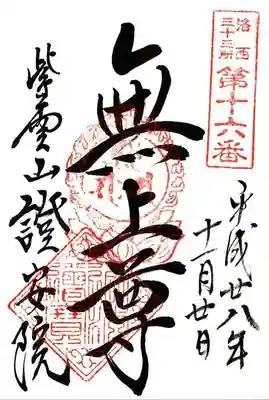 洛西
三十三所
第十六番
平成廿八年
十一月廿日
無上尊
紫雲山證安院